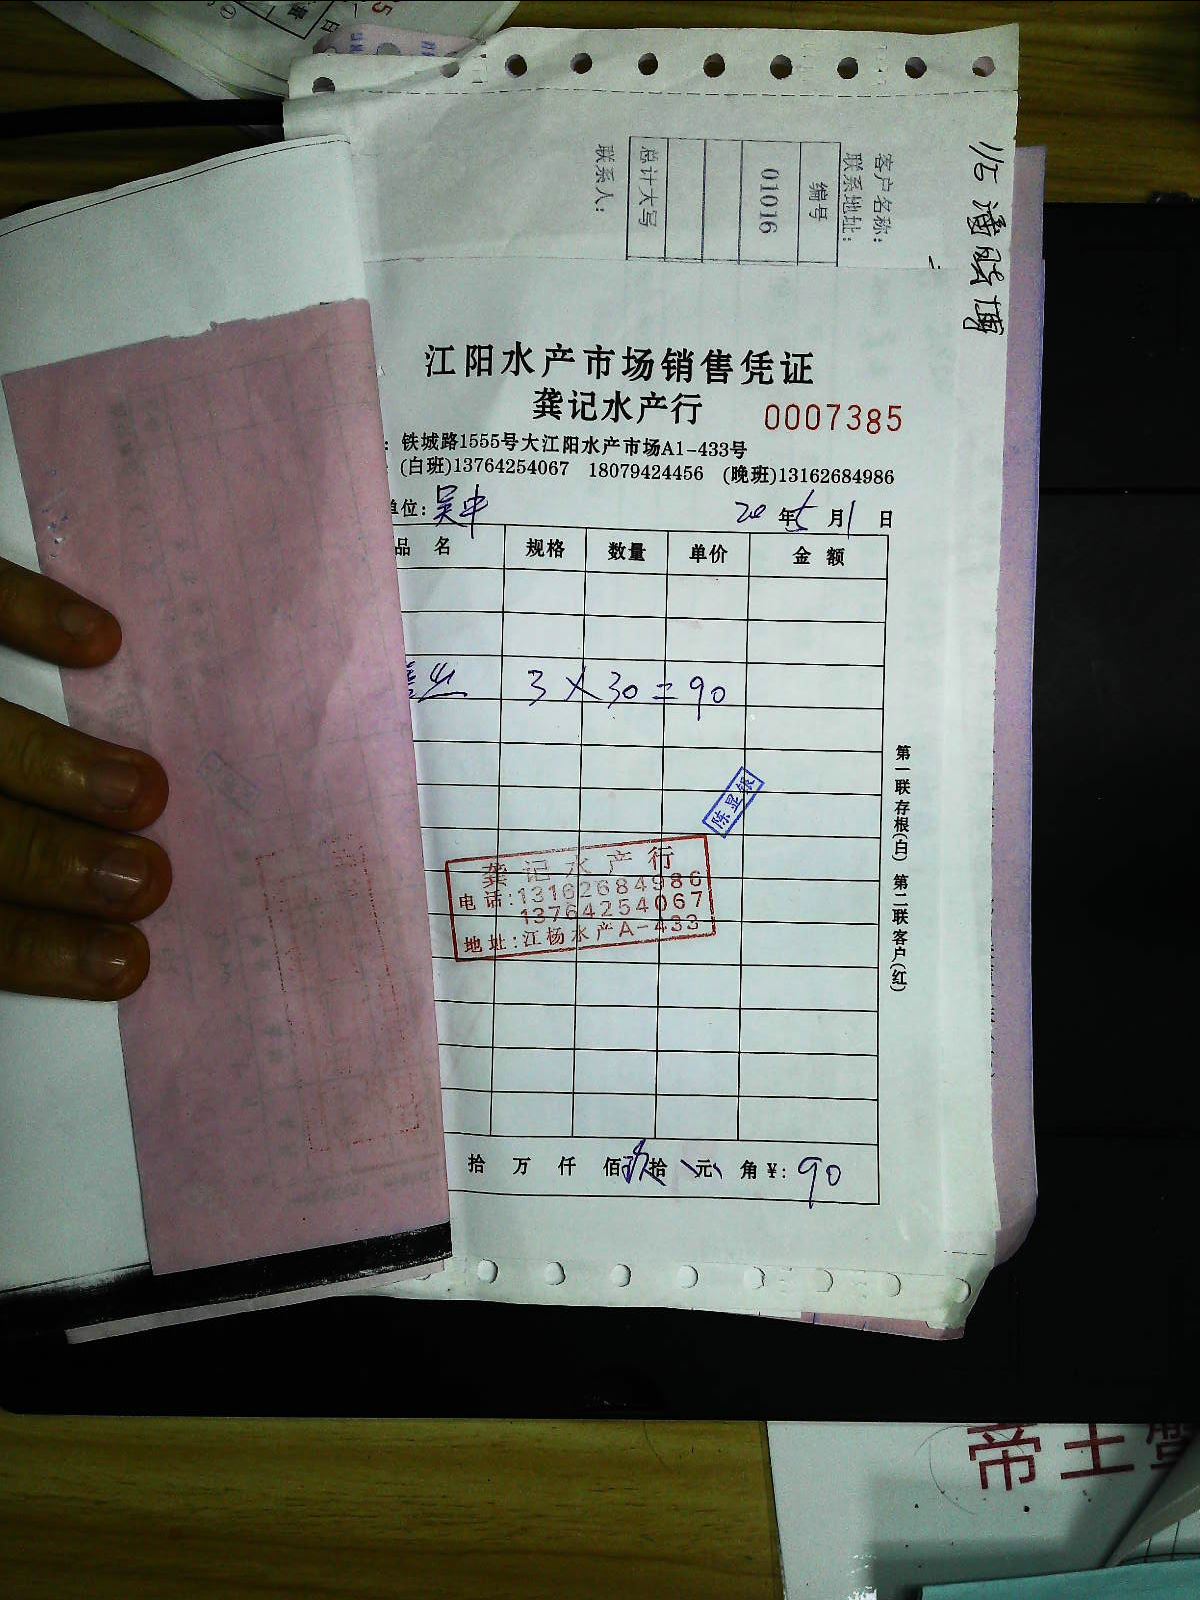 客户名称:
联系地址:
编号
01016
总计大写
联系人:
1/5 潘
江阳水产市场销售凭证
龚记水产行 0007385
: 铁城路1555号大江阳水产市场A1-433号
: (白班)13764254067 18079424456 (晚班)13162684986
单位: 吴中 20年5月1日
品名 规格 数量 单价 金额
3×30=90
陈显银
龚记水产行
电话:13162684986
13764254067
地址:江杨水产A-433
第一联存根(白) 第二联客户(红)
拾 万 仟 佰 玖拾 元 角 ¥: 90
帝王蟹